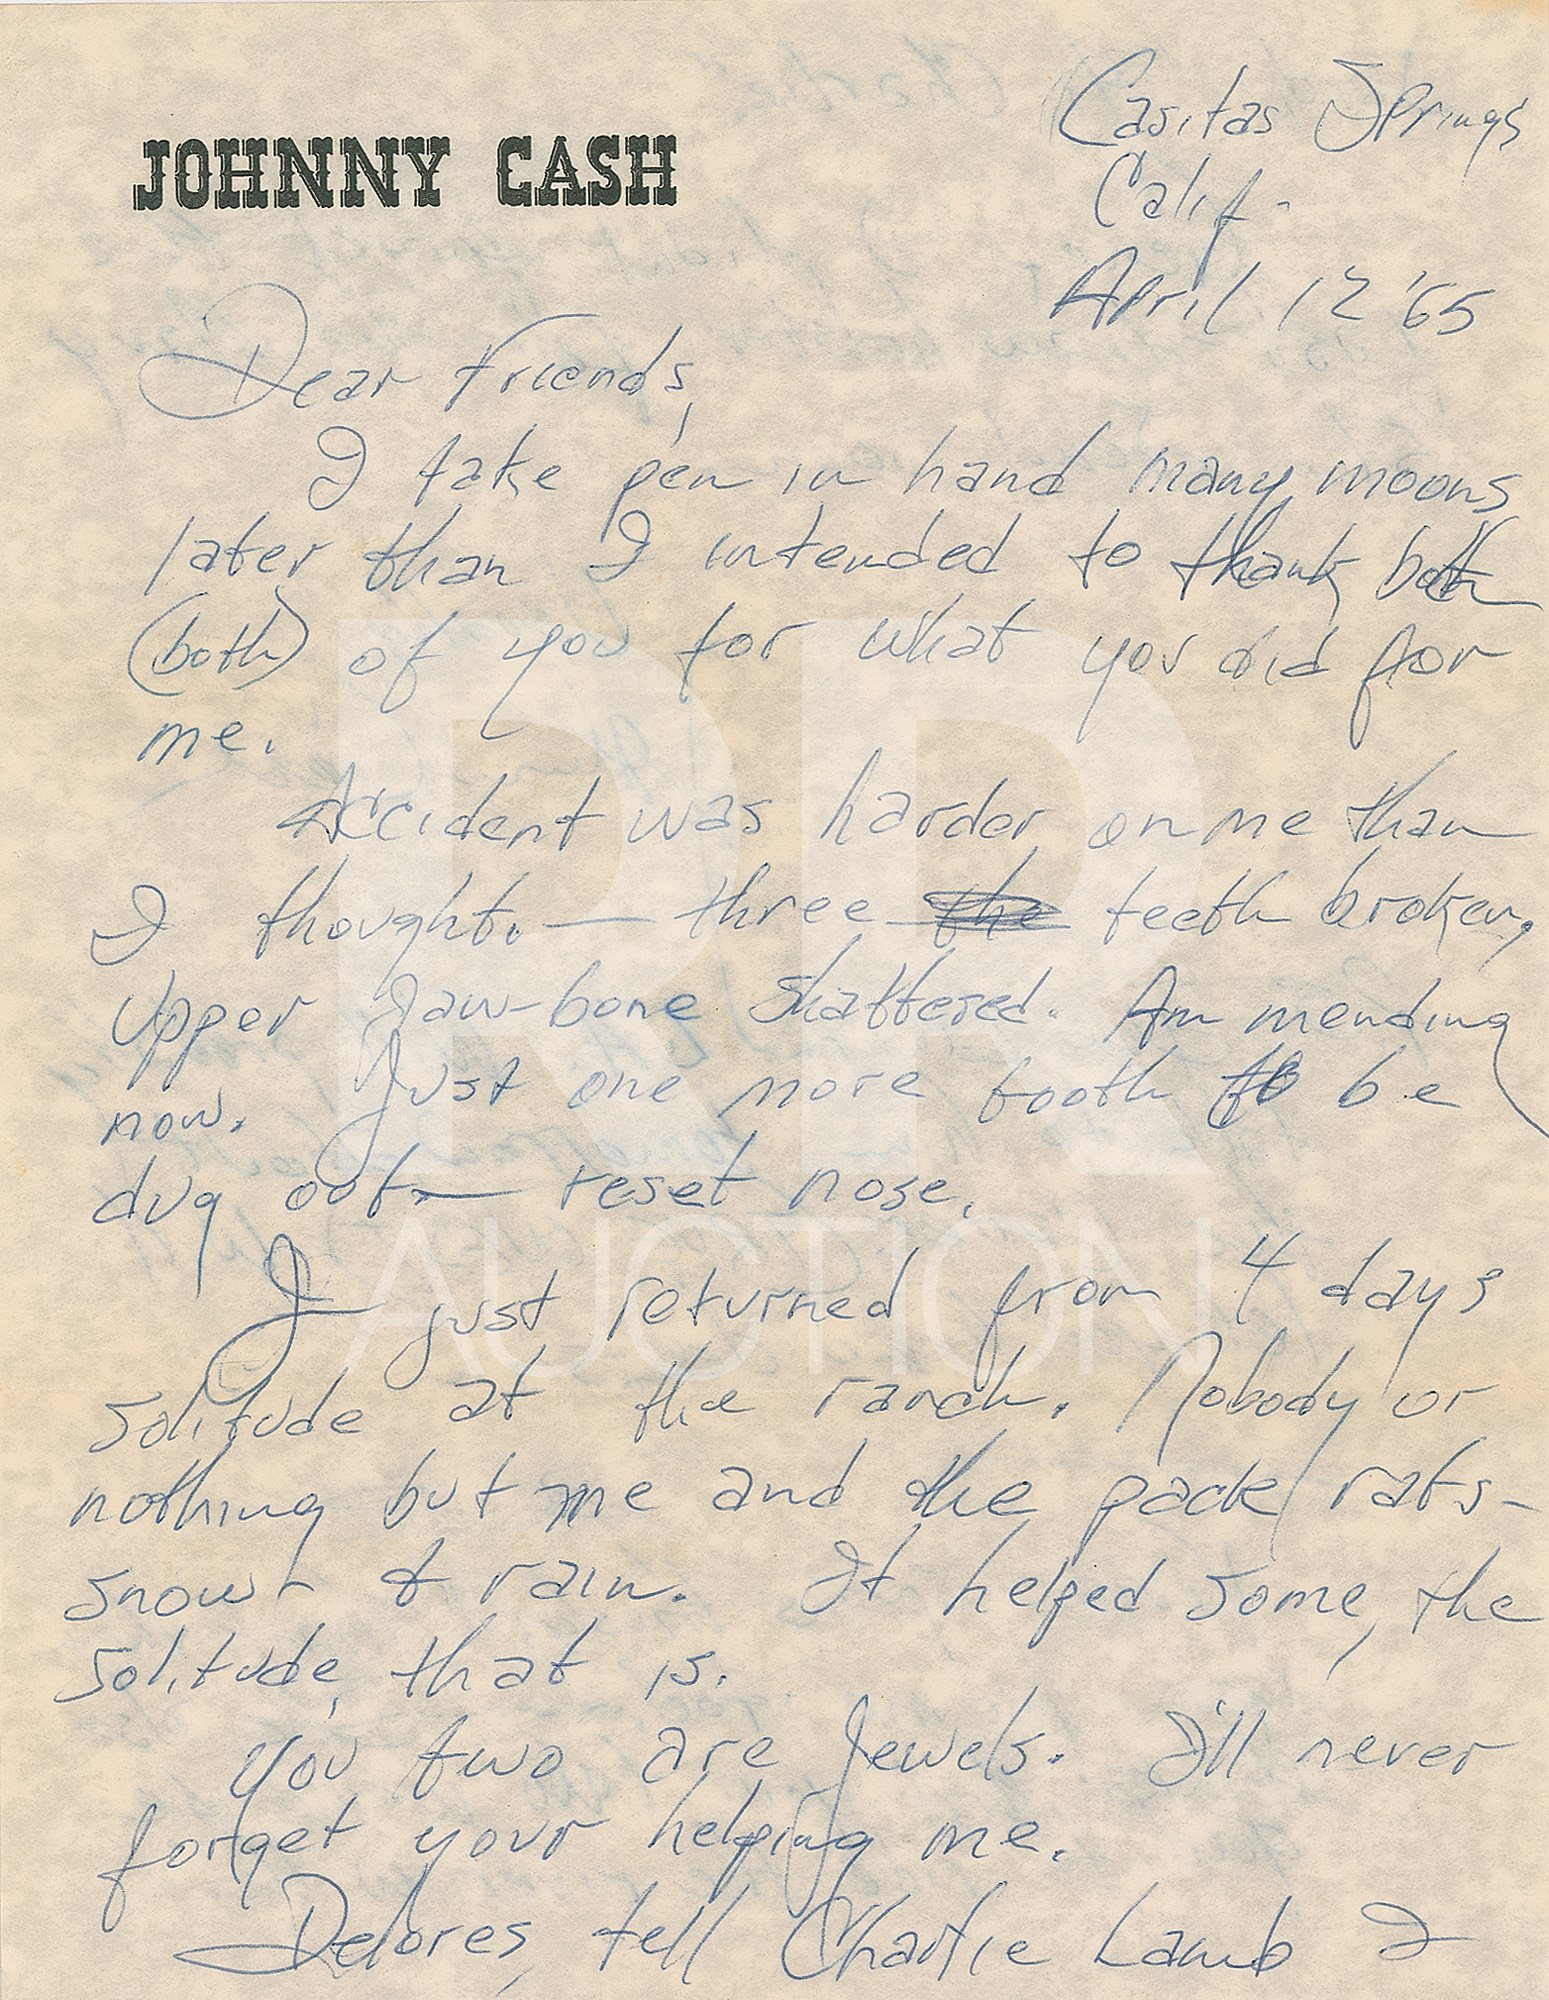 JOHNNY CASH
Casitas Springs
Calif-
April 12 '65
Dear Friends,
I take pen in hand many moons
later than I intended to thank both
(both) of you for what you did for
me.
Accident was harder on me than
I thought. — three the teeth broken,
upper jaw-bone shattered. Am mending
now. Just one more tooth to be
dug out — reset nose.
I just returned from 4 days
solitude at the ranch. Nobody or
nothing but me and the pack rats -
snow - & rain. It helped some, the
solitude, that is.
You two are jewels. I'll never
forget your helping me.
Delores, tell Charlie Lamb I
RR
AUCTION